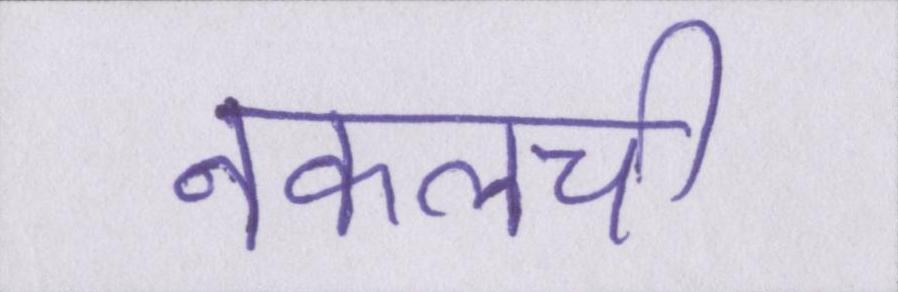 नकलची